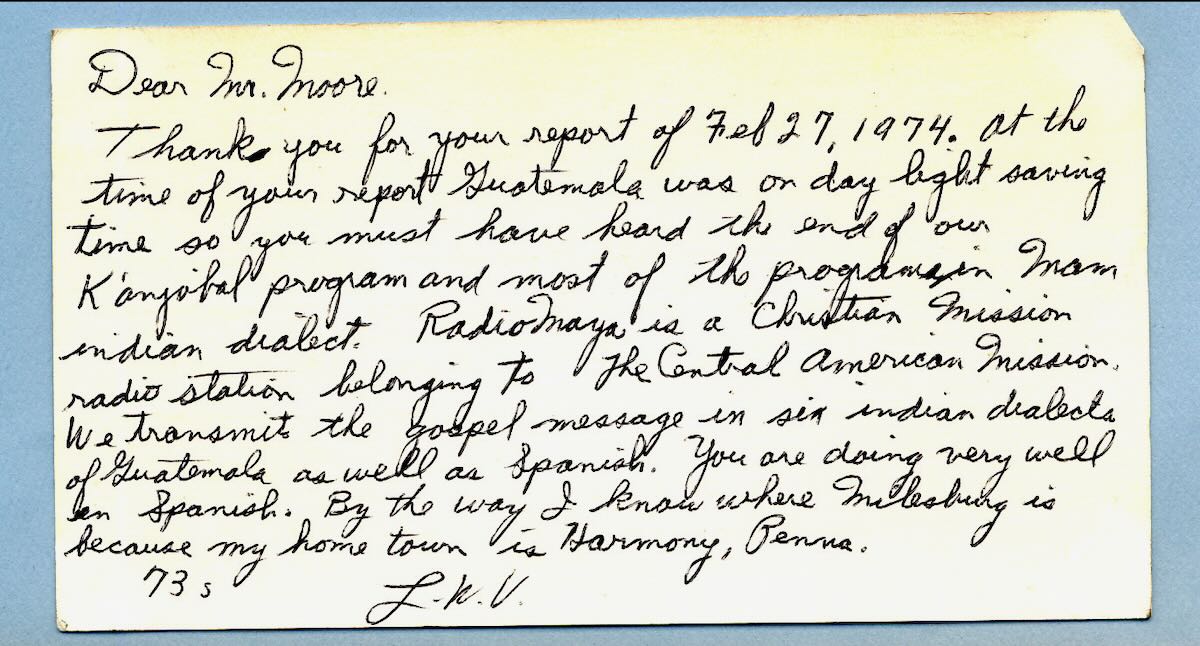 Dear Mr. Moore.
Thank you for your report of Feb 27, 1974. At the
time of your report Guatemala was on day light saving
time so you must have heard the end of our
K'anjobal program and most of the program in Mam
indian dialect. Radio Maya is a Christian Mission
radio station belonging to The Central American Mission.
We transmit the gospel message in six indian dialects
of Guatemala as well as Spanish. You are doing very well
in Spanish. By the way I know where Milesburg is
because my home town is Harmony, Penna.
73s L.W.V.